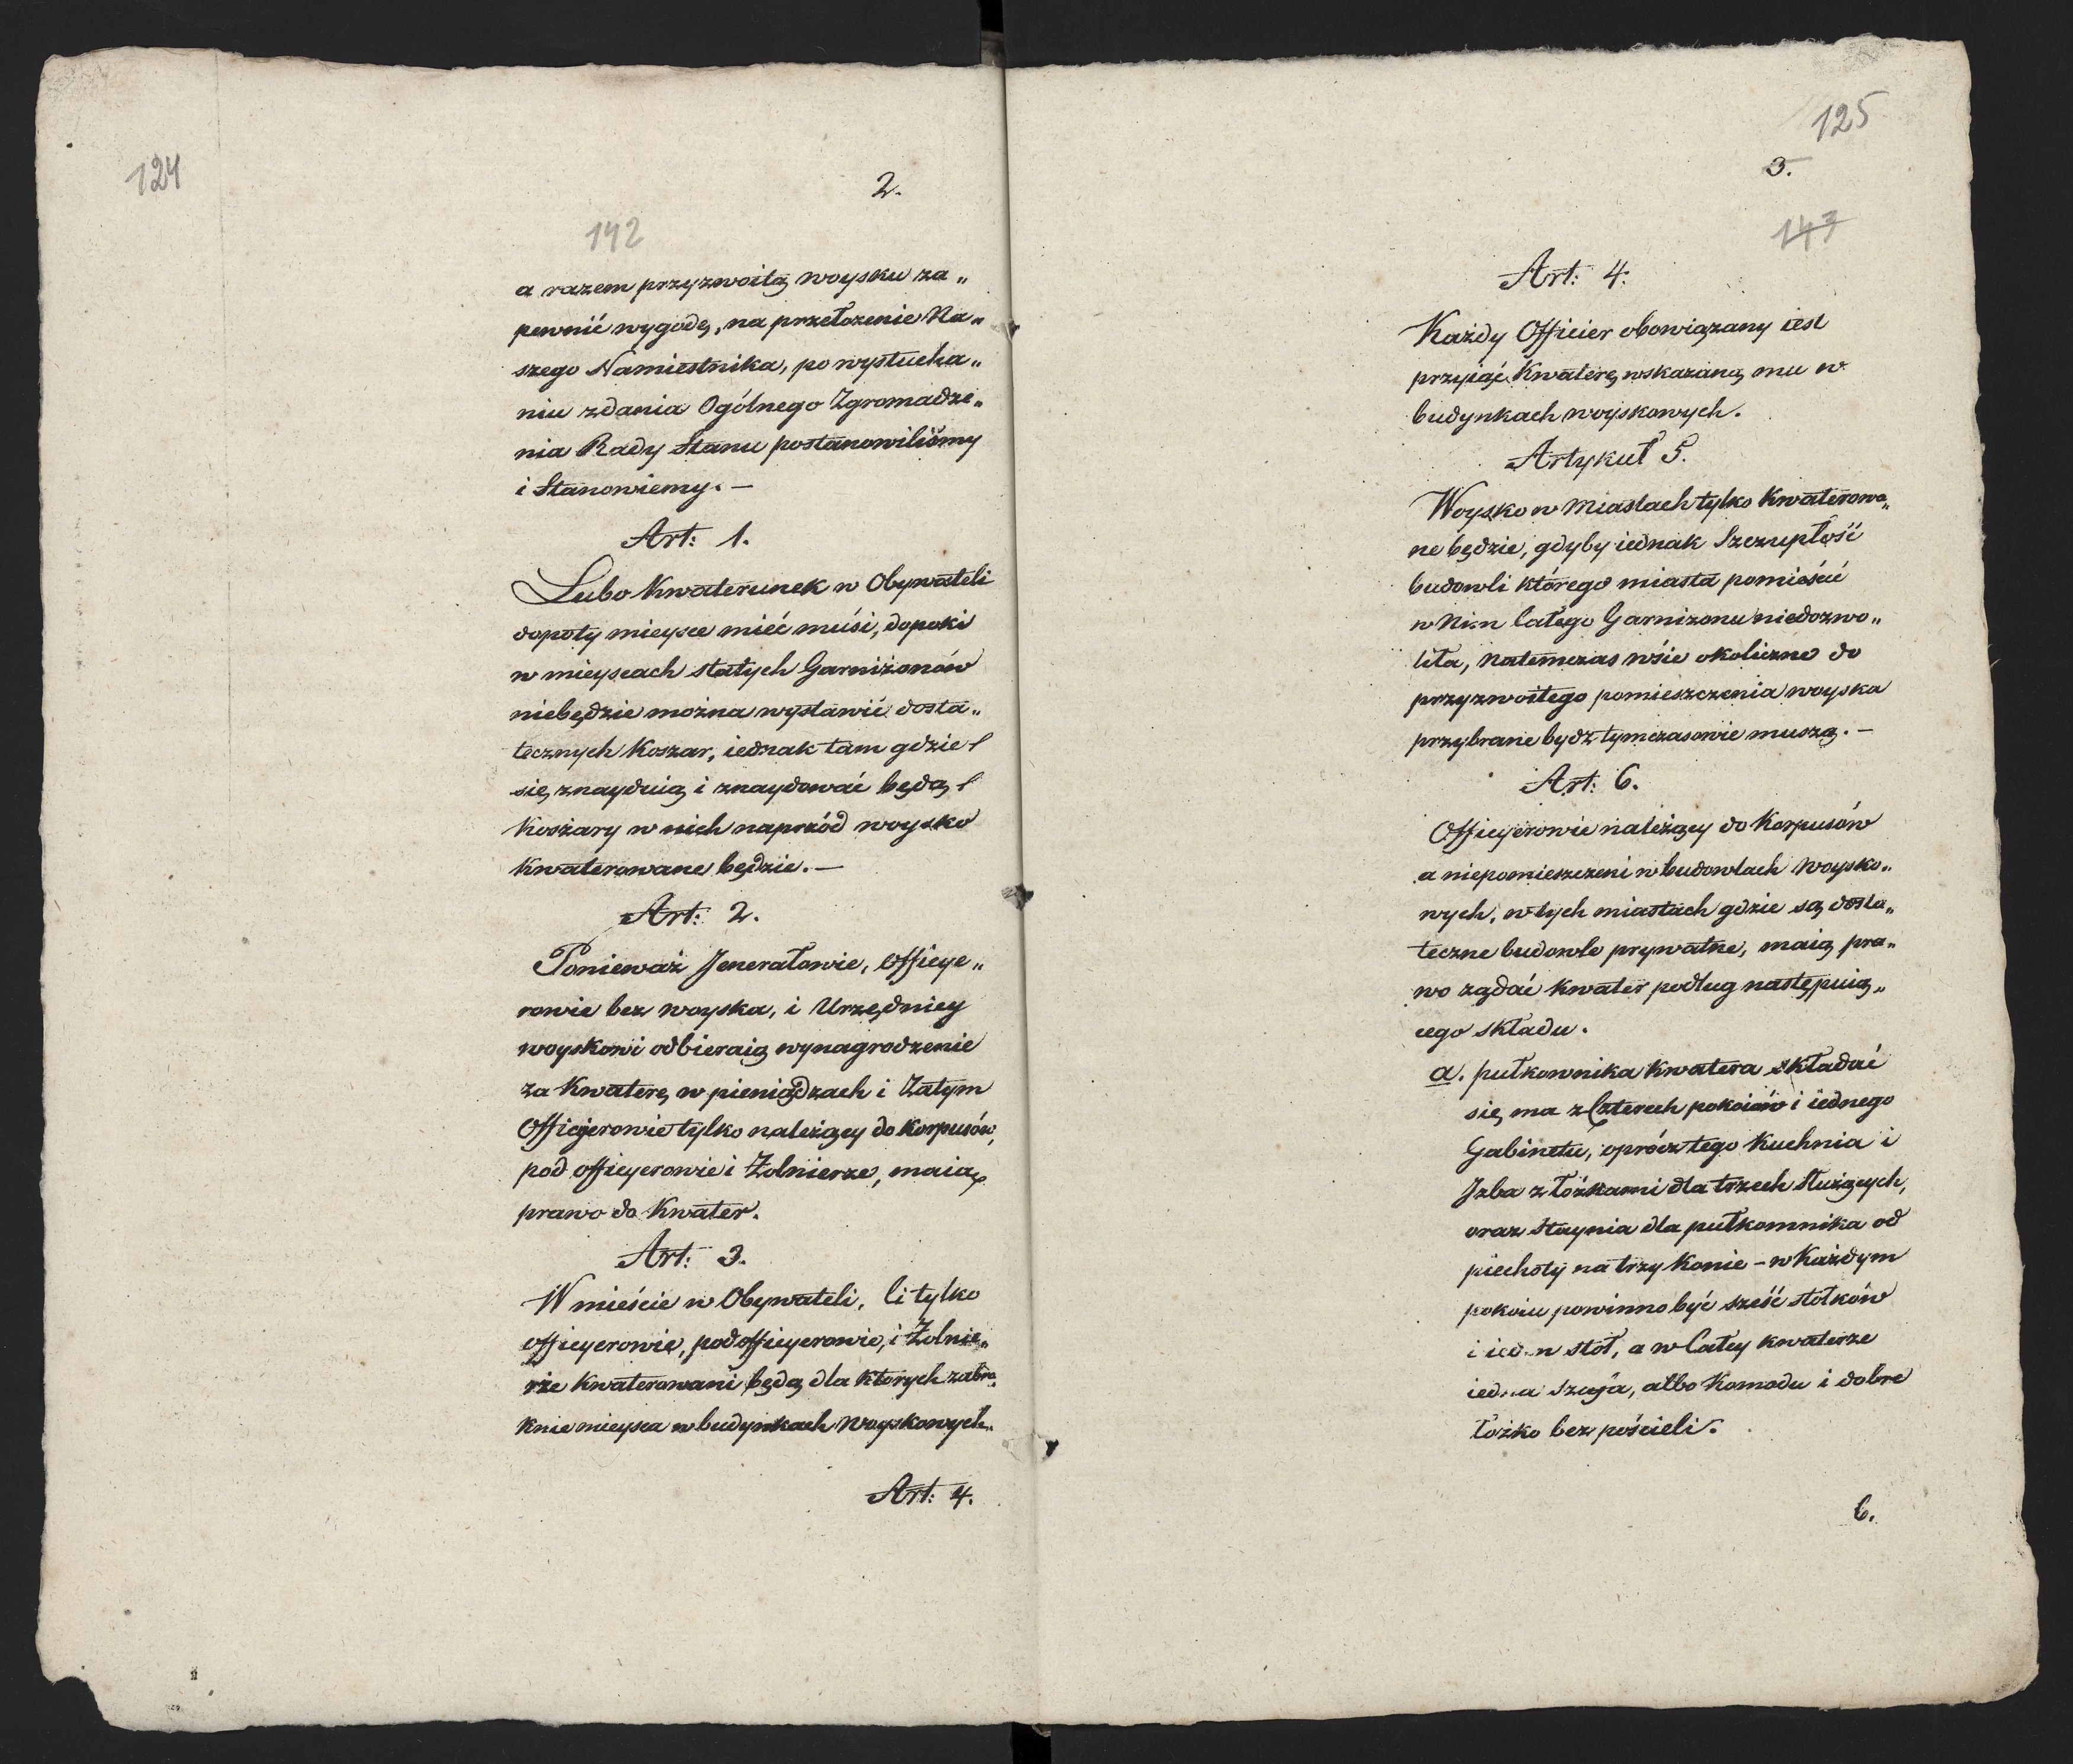 124
2.
142
a razem przyzwoitą woysku za„
pewnić wygodę, na przełożenie Na„
szego Namiestnika, po wysłucha„
niu zdania Ogólnego Zgromadze„
nia Rady Stanu postanowiliśmy
i Stanowiemy. —
Art: 1.
Lubo Kwaterunek w Obywateli
dopoty mieysce mieć musi, dopoki
w mieyscach stałych Garnizonów
niebędzie można wystawić dosta„
tecznych Koszar, iednak tam gdzie
się znayduią i znaydować będą
Koszary w nich naprzód woysko
Kwaterowane będzie. —
Art: 2.
Ponieważ Jenerałowie, Officye„
rowie bez woyska, i Urzędnicy
woyskowi odbieraią wynagrodzenie
za Kwaterę w pieniądzach i Zatym
Officyerowie tylko należący do Korpusów,
pod officyerowie i Żołnierze, maią
prawo do Kwater.
Art: 3.
W mieście w Obywateli, li tylko
officyerowie, pod officyerowie, i Żołnie„
rze Kwaterowani będą dla ktorych zabra„
knie mieysca w budynkach Woyskowych.
Art: 4.
125
3.
143
Art: 4.
Każdy Officier obowiązany iest
przyiąć Kwaterę wskazaną mu w
budynkach woyskowych.
Artykuł 5.
Woysko w Miastach tylko Kwaterowa„
ne będzie, gdyby iednak Szczupłość
budowli którego miasta pomieścić
w Nim Całego Garnizonu niedozwo„
liła, Natenczas wsie okoliczne do
przyzwoitego pomieszczenia woyska
przybrane bydź tymczasowie muszą. —
Art: 6.
Officyerowie należący do Korpusów
a niepomieszczeni w budowlach Woysko„
wych, w tych miastach gdzie są dosta„
teczne budowle prywatne, maią pra„
wo żądać Kwater podług następuią„
cego składu.
a. pułkownika Kwatera składać
się ma z Czterech pokoiów i iednego
Gabinetu, oprócz tego Kuchnia i
Izba z łóżkami dla trzech Służących,
oraz Staynia dla pułkownika od
piechoty na trzy Konie – w Każdym
pokoiu powinno być sześć stołków
i ieden stół, a w Całey kwaterze
iedna Szafa, albo Komoda i dobre
łóżko bez pościeli.
b.